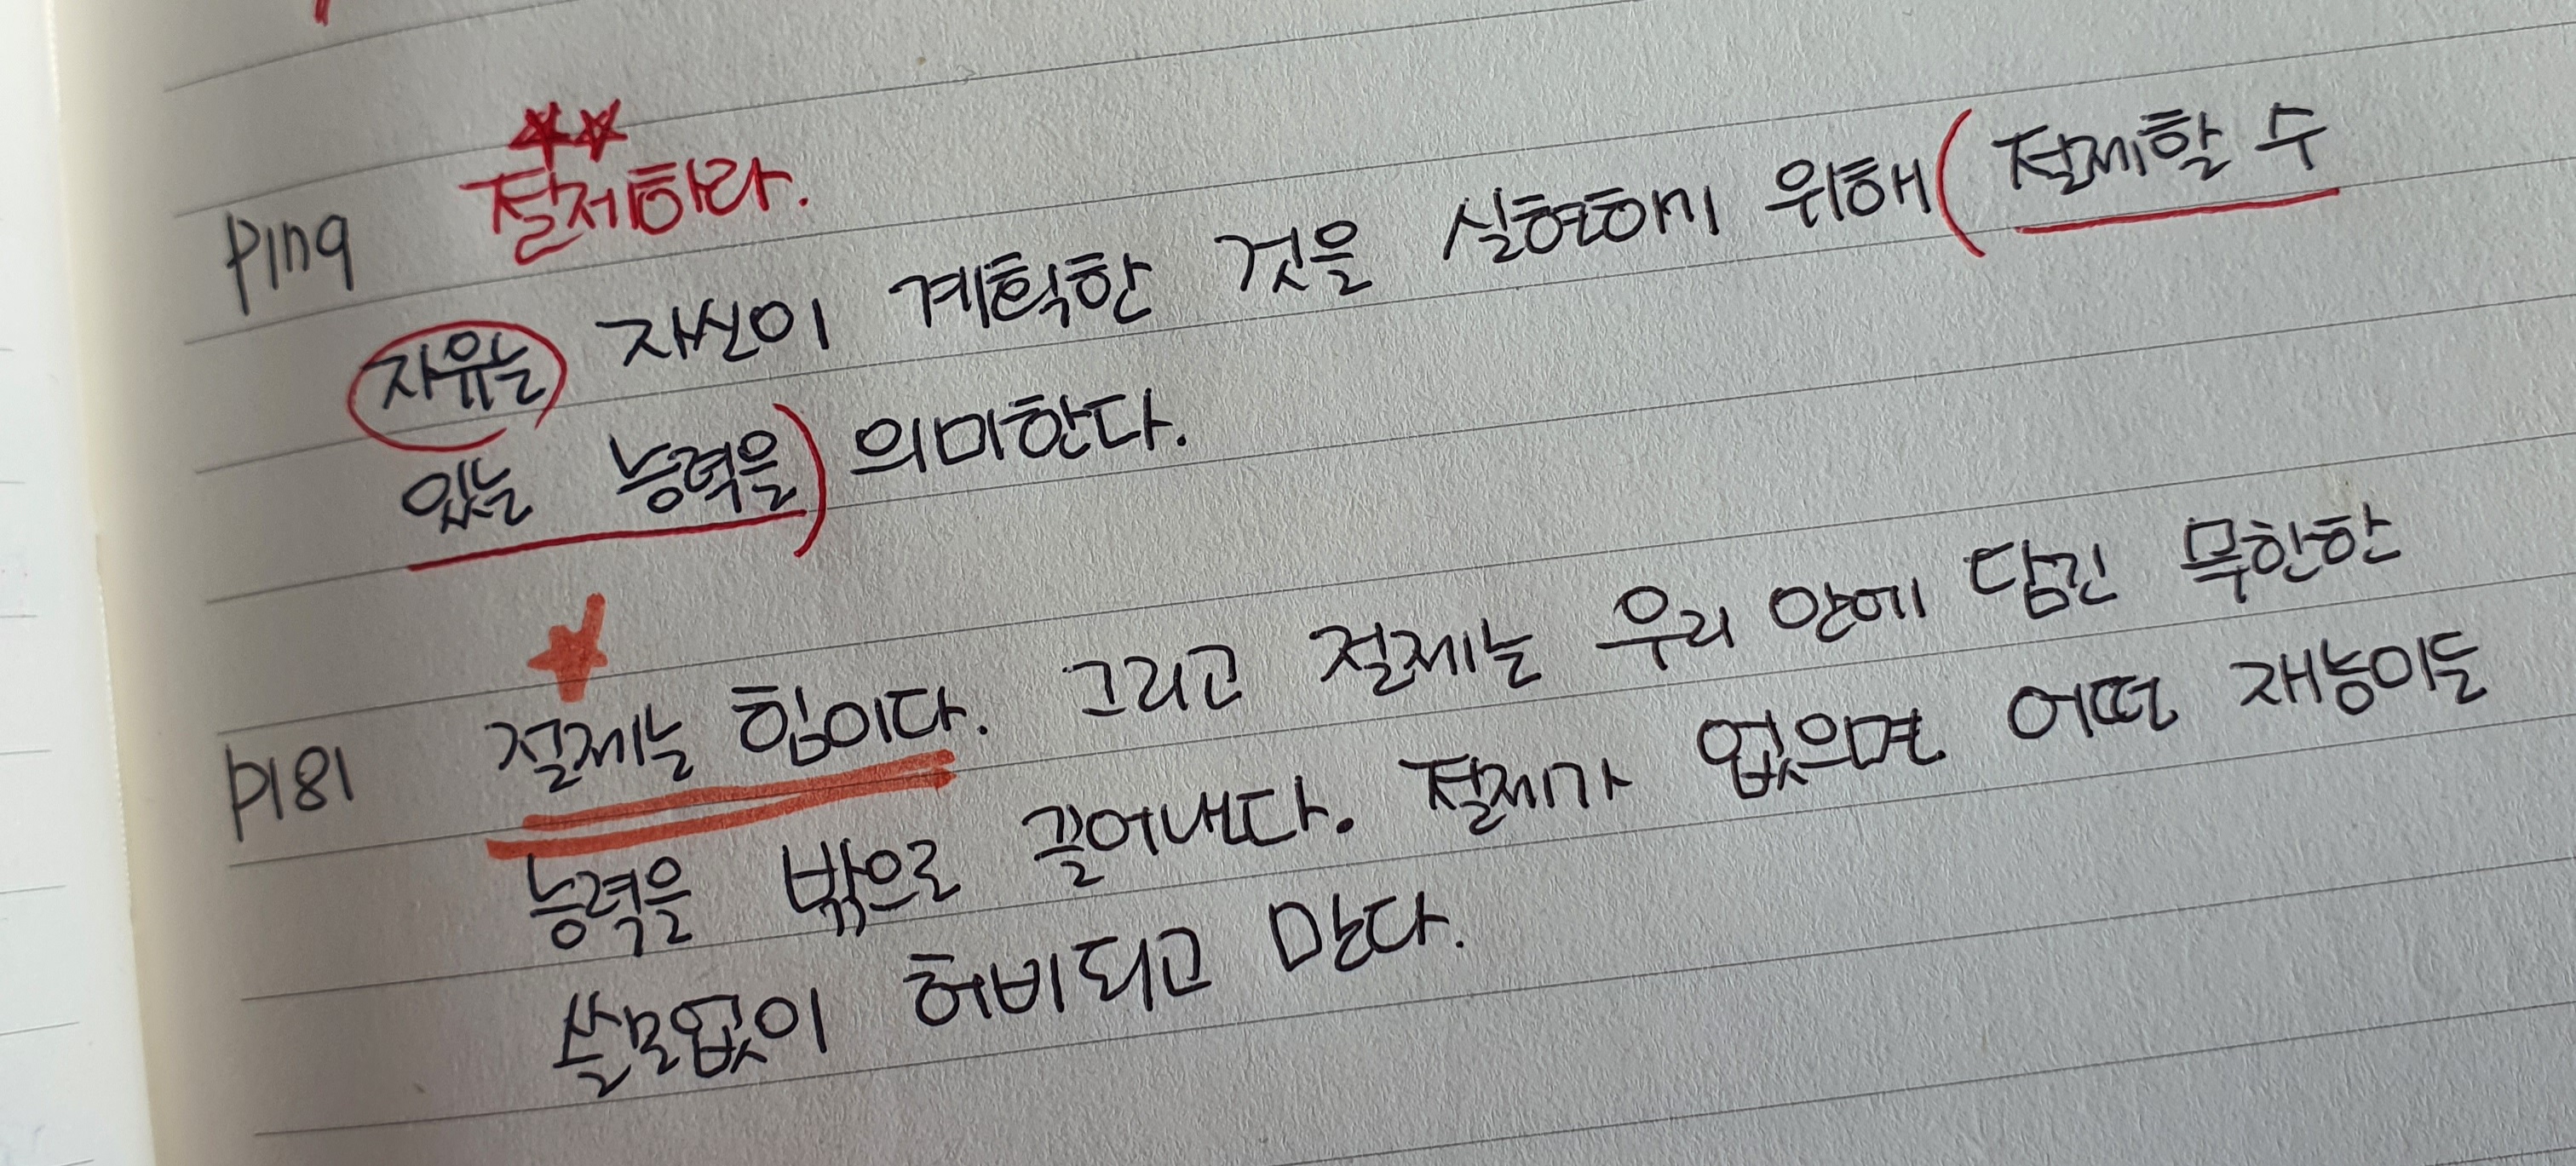 p179 절제하라.
자유는 자신이 계획한 것을 실현하기 위해 (절제할 수
있는 능력을) 의미한다.
p181 절제는 힘이다. 그리고 절제는 우리 안에 담긴 무한한
능력을 밖으로 끌어낸다. 절제가 없으면 어떤 재능이든
쓸모없이 허비되고 만다.